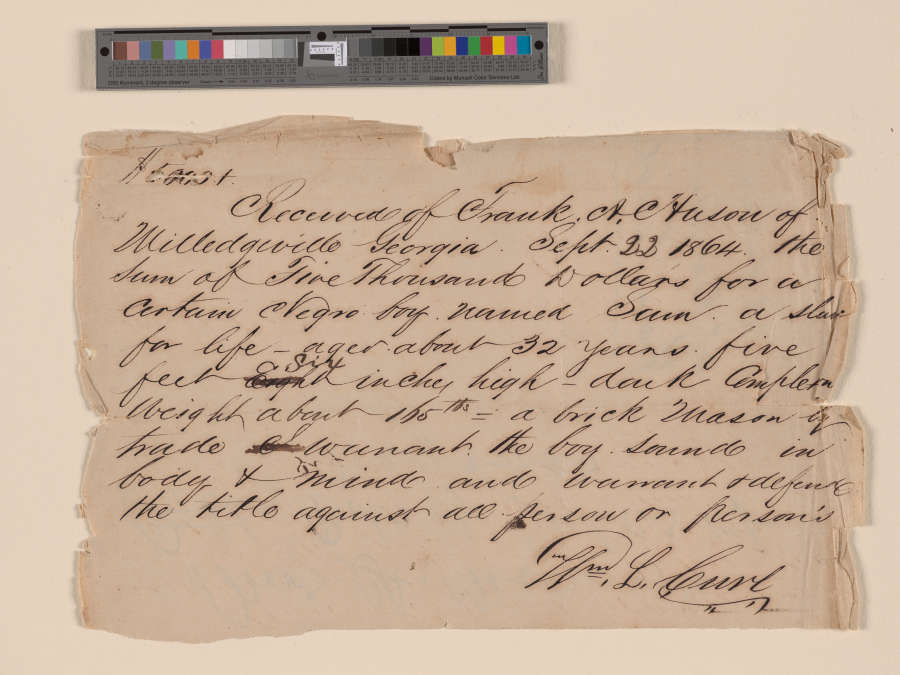 Received of Frank. A. Huson of
Milledgeville Georgia. Sept. 22 1864. the
Sum of Five Thousand Dollars for a
certain Negro boy. named Sam. a slave
for life - aged about 32 years. five
feet Six inches high - dark Complexn
Weight about 165 lbs = a brick Mason by
trade I warrant. the boy. sound in
body & mind and warrant & defend
the title against all person or person's
Wm. L. Curl